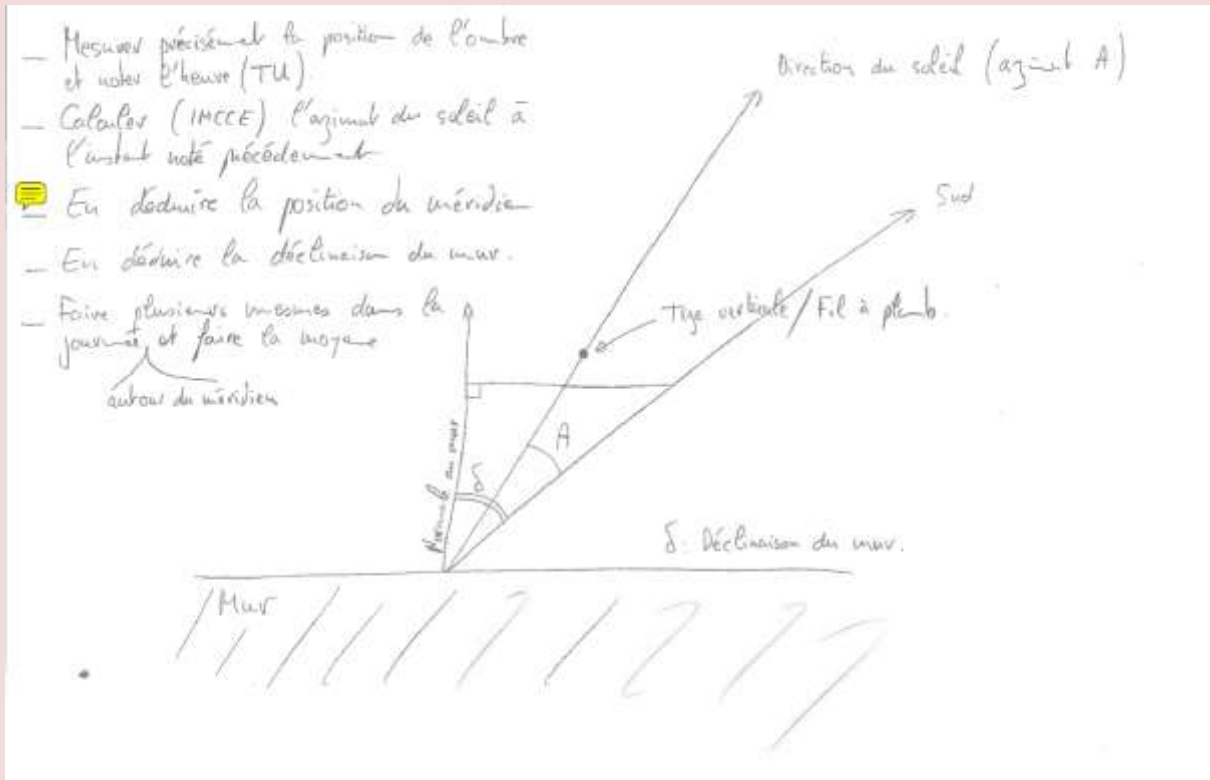 — Mesurer précisément la position de l'ombre
et noter l'heure (TU)
— Calculer (IMCCE) l'azimut du soleil à
l'instant noté précédemment
— En déduire la position du méridien
— En déduire la déclinaison du mur.
— Faire plusieurs mesures dans la
journée et faire la moyenne
autour du méridien
Direction du soleil (azimut A)
Sud
Tige verticale / Fil à plomb
A
δ
Normale au mur
δ : Déclinaison du mur.
Mur